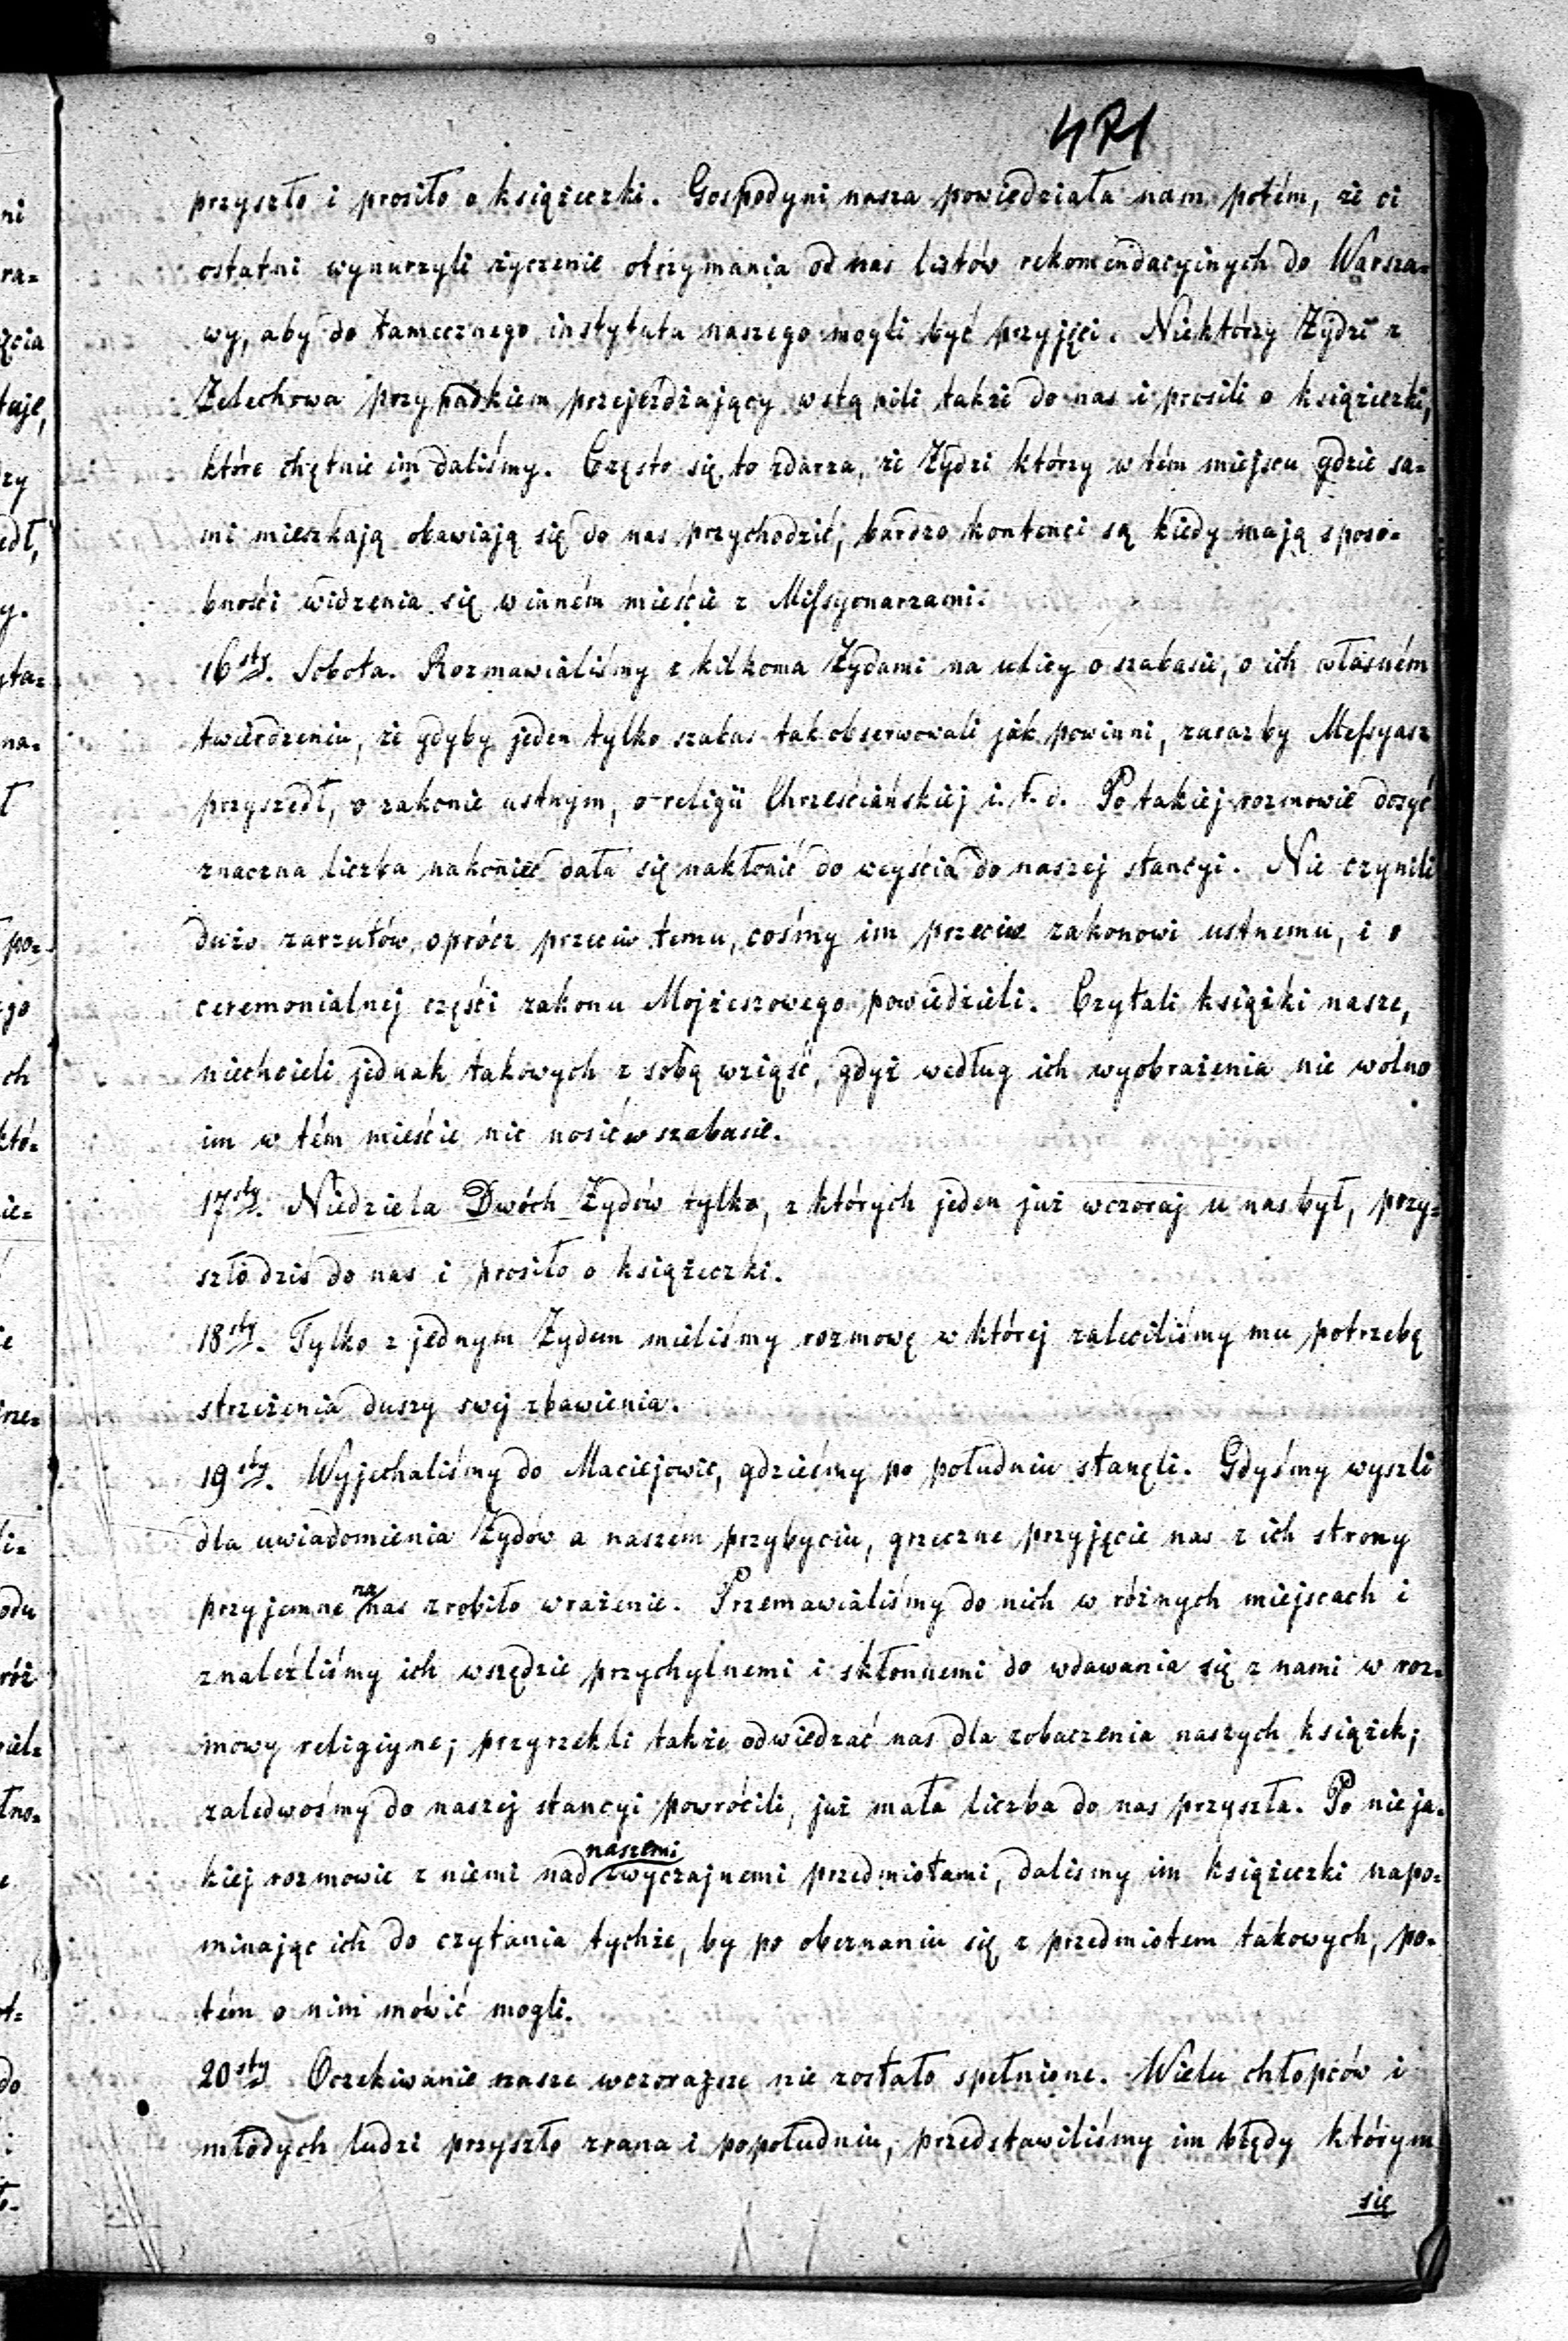 471
przyszło i prosiło o książeczki. Gospodyni nasza powiedziała nam potém, że ci
ostatni wynurzyli życzenie otrzymania od nas listów rekomendacyinych do Warsza=
wy, aby do tamecznego instytutu naszego mogli być przyjęci. Niektórzy Żydzi z
Żelechowa przypadkiem przejeżdżający wstąpili także do nas i prosili o książeczki,
które chętnie im daliśmy. Często się to zdarza, że Żydzi którzy w tém miejscu gdzie sa=
mi mieszkają obawiają się do nas przychodzić, bardzo kontenci są kiedy mają sposo=
bności widzenia się w inném mieście z Missyonarzami.
16sty. Sobota. Rozmawialiśmy z kilkoma Żydami na ulicy o szabasie, o ich własném
twierdzeniu, że gdyby jeden tylko szabas tak obserwowali jak powinni, zarazby Messyasz
przyszedł, o zakonie ustnym, o religii Chrześciańskiej i.t.d. Po takiej rozmowie dosyć
znaczna liczba nakoniec dała się nakłonić do weyścia do naszej stancyi. Nie czynili
dużo zarzutów, oprócz przeciw temu, cośmy im przeciw zakonowi ustnemu, i o
ceremonialnej części zakonu Mojżeszowego powiedzieli. Czytali książki nasze,
niechcieli jednak takowych z sobą wziąść, gdyż według ich wyobrażenia nie wolno
im w tém mieście nic nosić w szabasie.
17sty. Niedziela Dwóch Żydów tylko, z których jeden już wczoraj u nas był, przy=
szło dziś do nas i prosiło o książeczki.
18sty. Tylko z jednym Żydem mieliśmy rozmowę w której zaleciliśmy mu potrzebę
strzeżenia duszy swej zbawienia.
19sty. Wyjechaliśmy do Maciejowic, gdzieśmy po południu stanęli. Gdyśmy wyszli
dla uwiadomienia Żydów a naszém przybyciu, grzeczne przyjęcie nas z ich strony
przyjemne na nas zrobiło wrażenie. Przemawialiśmy do nich w różnych miejscach i
znaleźliśmy ich wszędzie przychylnemi i skłonnemi do wdawania się z nami w roz=
mowy religiyne; przyrzekli także odwiedzać nas dla zobaczenia naszych książek;
zaledwośmy do naszej stancyi powrócili, już mała liczba do nas przyszła. Po nieja=
kiej rozmowie z niemi nad naszemi zwyczajnemi przedmiotami, daliśmy im książeczki napo=
minając ich do czytania tychże, by po obeznaniu się z przedmiotem takowych, po=
tém o nim mówić mogli.
20sty Oczekiwanie nasze wczorajsze nie zostało spełnione. Wielu chłopców i
młodych ludzi przyszło zrana i popołudniu, przedstawiliśmy im błędy którym
się